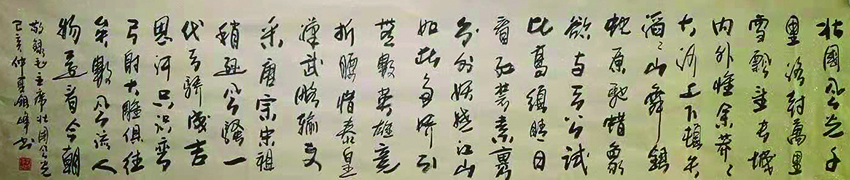 北國风光千
里冰封萬里
雪飄望长城
内外惟余莽〻
大河上下顿失
滔〻山舞銀
蛇原馳蜡象
欲与天公試
比高須晴日
看红装素裹
分外妖娆江山
如此多娇引
無數英雄竞
折腰惜秦皇
漢武略输文
采唐宗宋祖
稍逊风骚一
代天骄成吉
思汗只识弯
弓射大雕俱往
矣數风流人
物还看今朝
敬録毛主席北国风光
己亥仲夏峰书